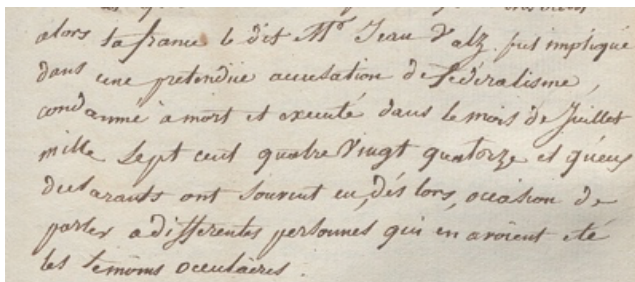 alors la france le dit Mr Jean Valz fut impliqué
dans une pretendüe accusation de fédéralisme,
condanmé a mort et executé dans le mois de Juillet
mille Sept cent quatre Vingt quatorze et qu'eux
declarants ont souvent eu, dés lors, occasion de
parler a differentes personnes qui en avoient eté
les temoins occulaires.